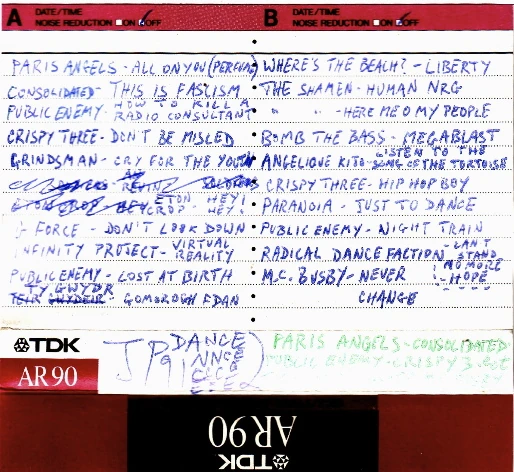 A DATE/TIME
NOISE REDUCTION ON OFF
B DATE/TIME
NOISE REDUCTION ON OFF
PARIS ANGELS - ALL ON YOU (PERFUME)
CONSOLIDATED - THIS IS FASCISM
PUBLIC ENEMY - HOW TO KILL A RADIO CONSULTANT
CRISPY THREE - DON'T BE MISLED
GRINDSMAN - CRY FOR THE YOUTH
ETON CROP - HEY! HEY!
G FORCE - DON'T LOOK DOWN
INFINITY PROJECT - VIRTUAL REALITY
PUBLIC ENEMY - LOST AT BIRTH
TY GWYDR
GOMOROGH FDAN
WHERE'S THE BEACH? - LIBERTY
THE SHAMEN - HUMAN NRG
" " - HERE ME O MY PEOPLE
BOMB THE BASS - MEGABLAST
ANGELIQUE KIJO - LISTEN TO THE SONG OF THE TORTOISE
CRISPY THREE - HIP HOP BOY
PARANOIA - JUST TO DANCE
PUBLIC ENEMY - NIGHT TRAIN
RADICAL DANCE FACTION - CAN'T STAND NO MORE
M.C. BUSBY - NEVER HOPE
CHANGE
TDK
AR 90
JP
DANCE
PARIS ANGELS - CONSOLIDATED
PUBLIC ENEMY - CRISPY 3 ect
AR 90
TDK